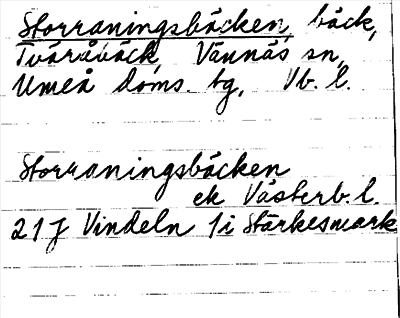 Storraningsbäcken, bäck,
Tväråbäck, Vännäs sn,
Umeå doms. tg, Vb. l.
Storraningsbäcken
ek Västerb. l.
21 J Vindeln 1 i Stärkesmark